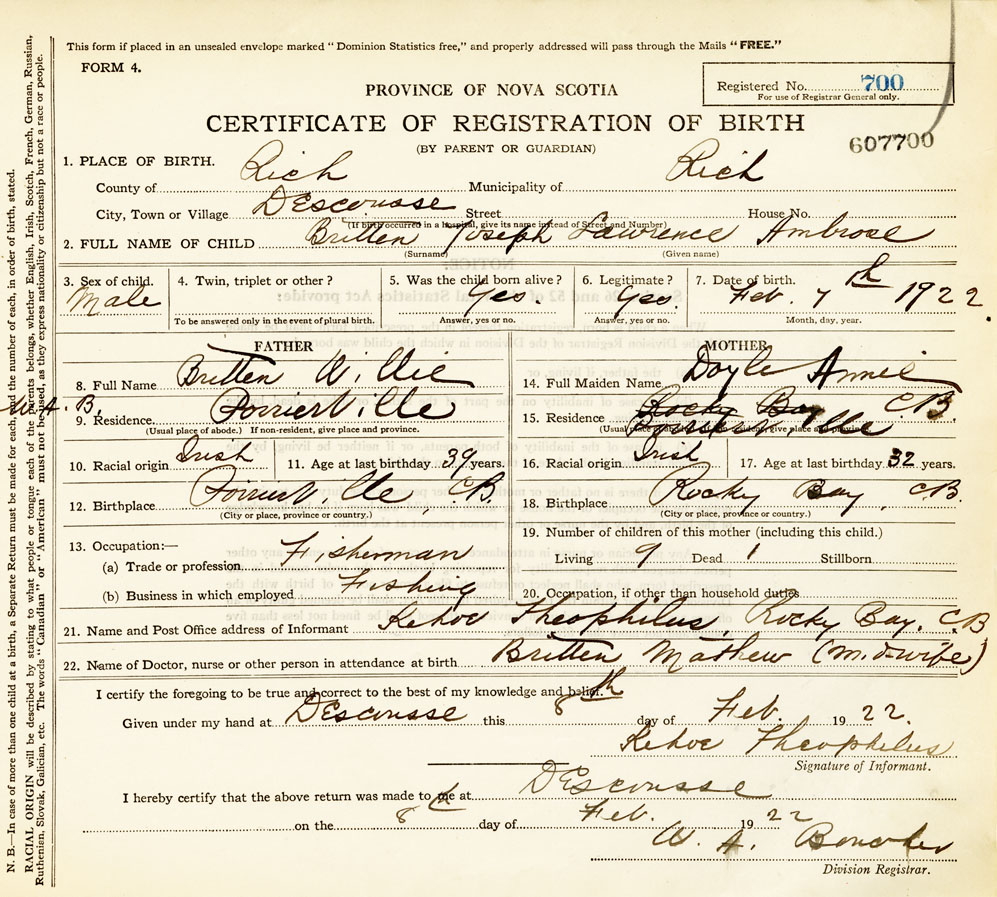 This form if placed in an unsealed envelope marked "Dominion Statistics free," and properly addressed will pass through the Mails "FREE."
FORM 4.
Registered No. 700
For use of Registrar General only.
PROVINCE OF NOVA SCOTIA
CERTIFICATE OF REGISTRATION OF BIRTH
(BY PARENT OR GUARDIAN)
607700
1. PLACE OF BIRTH.
County of Rich Municipality of Rich
City, Town or Village Descousse Street House No.
(If birth occurred in a hospital, give its name instead of Street and Number)
2. FULL NAME OF CHILD Britten Joseph Lawrence Ambrose
(Surname) (Given name)
3. Sex of child. Male
4. Twin, triplet or other?
To be answered only in the event of plural birth.
5. Was the child born alive? Yes.
Answer, yes or no.
6. Legitimate? Yes.
Answer, yes or no.
7. Date of birth. Feb. 7th 1922.
Month, day, year.
FATHER
8. Full Name Britten Willie
W. A. B.
9. Residence. Poirierville
(Usual place of abode.) If non-resident, give place and province.
10. Racial origin Irish 11. Age at last birthday 39 years.
12. Birthplace Poirierville, C.B.
(City or place, province or country.)
13. Occupation:—
(a) Trade or profession Fisherman
(b) Business in which employed Fishing
MOTHER
14. Full Maiden Name Doyle Annie
15. Residence Rocky Bay C.B. Poirierville
16. Racial origin Irish 17. Age at last birthday 32 years.
18. Birthplace Rocky Bay, C.B.
(City or place, province or country.)
19. Number of children of this mother (including this child.)
Living 9 Dead 1 Stillborn
20. Occupation, if other than household duties.
21. Name and Post Office address of Informant Kehoe Theophilus, Rocky Bay, C.B
22. Name of Doctor, nurse or other person in attendance at birth Britten Mathew (midwife)
I certify the foregoing to be true and correct to the best of my knowledge and belief.
Given under my hand at Descousse this 8th day of Feb. 1922.
Kehoe Theophilus
Signature of Informant.
I hereby certify that the above return was made to me at Descousse
on the 8 day of Feb. 1922
W. A.
Division Registrar.
N. B.—In case of more than one child at a birth, a Separate Return must be made for each, and the number of each, in order of birth, stated.
RACIAL ORIGIN will be described by stating to what people or tongue each of the parents belongs, whether English, Irish, Scotch, French, German, Russian,
Ruthenian, Slovak, Galician, etc. The words "Canadian" or "American" must not be used, as they express nationality or citizenship but not a race or people.